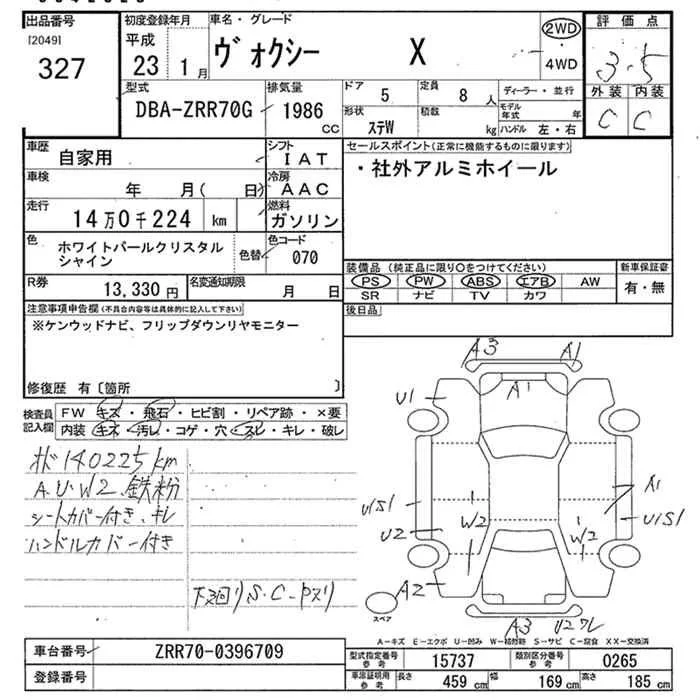 出品番号
[2049]
327
初度登録年月
平成
23 1月
車名・グレード
ヴォクシー X
2WD
・
4WD
評価点
3.5
外装 内装
C C
型式
DBA-ZRR70G
排気量
1986
CC
ドア 5
定員 8 人
形状 ステW
積数 kg
ディーラー・並行
モデル年式 年
ハンドル 左・右
車歴
自家用
シフト
IAT
車検
年 月( 日)
冷房
AAC
走行
14万0千224 km
燃料
ガソリン
色
ホワイトパールクリスタル
シャイン
色替
色コード
070
R券
13,330 円
名変通知期限
月 日
セールスポイント(正常に機能するものに限ります)
・社外アルミホイール
装備品 (純正品に限り○をつけてください)
PS PW ABS エアB AW
SR ナビ TV カワ
新車保証書
有・無
後日品
注意事項申告欄(不具合内容等は具体的に記入して下さい)
※ケンウッドナビ、フリップダウンリヤモニター
修復歴 有〔箇所 〕
検査員
記入欄
FW キズ・飛石・ヒビ割・リペア跡・×要
内装 キズ・汚レ・コゲ・穴・スレ・キレ・破レ
140225km
A.U.W2.鉄粉
シートカバー付き、キレ
ハンドルカバー付き
下廻りS・C-ヤスリ
A3 A1
A1
U1
U1S1
U2
W2
A2
A1
U1S1
W2
A3 U2ワレ
スペア
A-キズ E-エクボ U-凹み W-補修跡 S-サビ C-腐食 XX-交換済
車台番号
ZRR70-0396709
登録番号
型式指定番号
参考
15737
類別区分番号
参考
0265
車庫証明用
参考
長さ 459 cm
幅 169 cm
高さ 185 cm